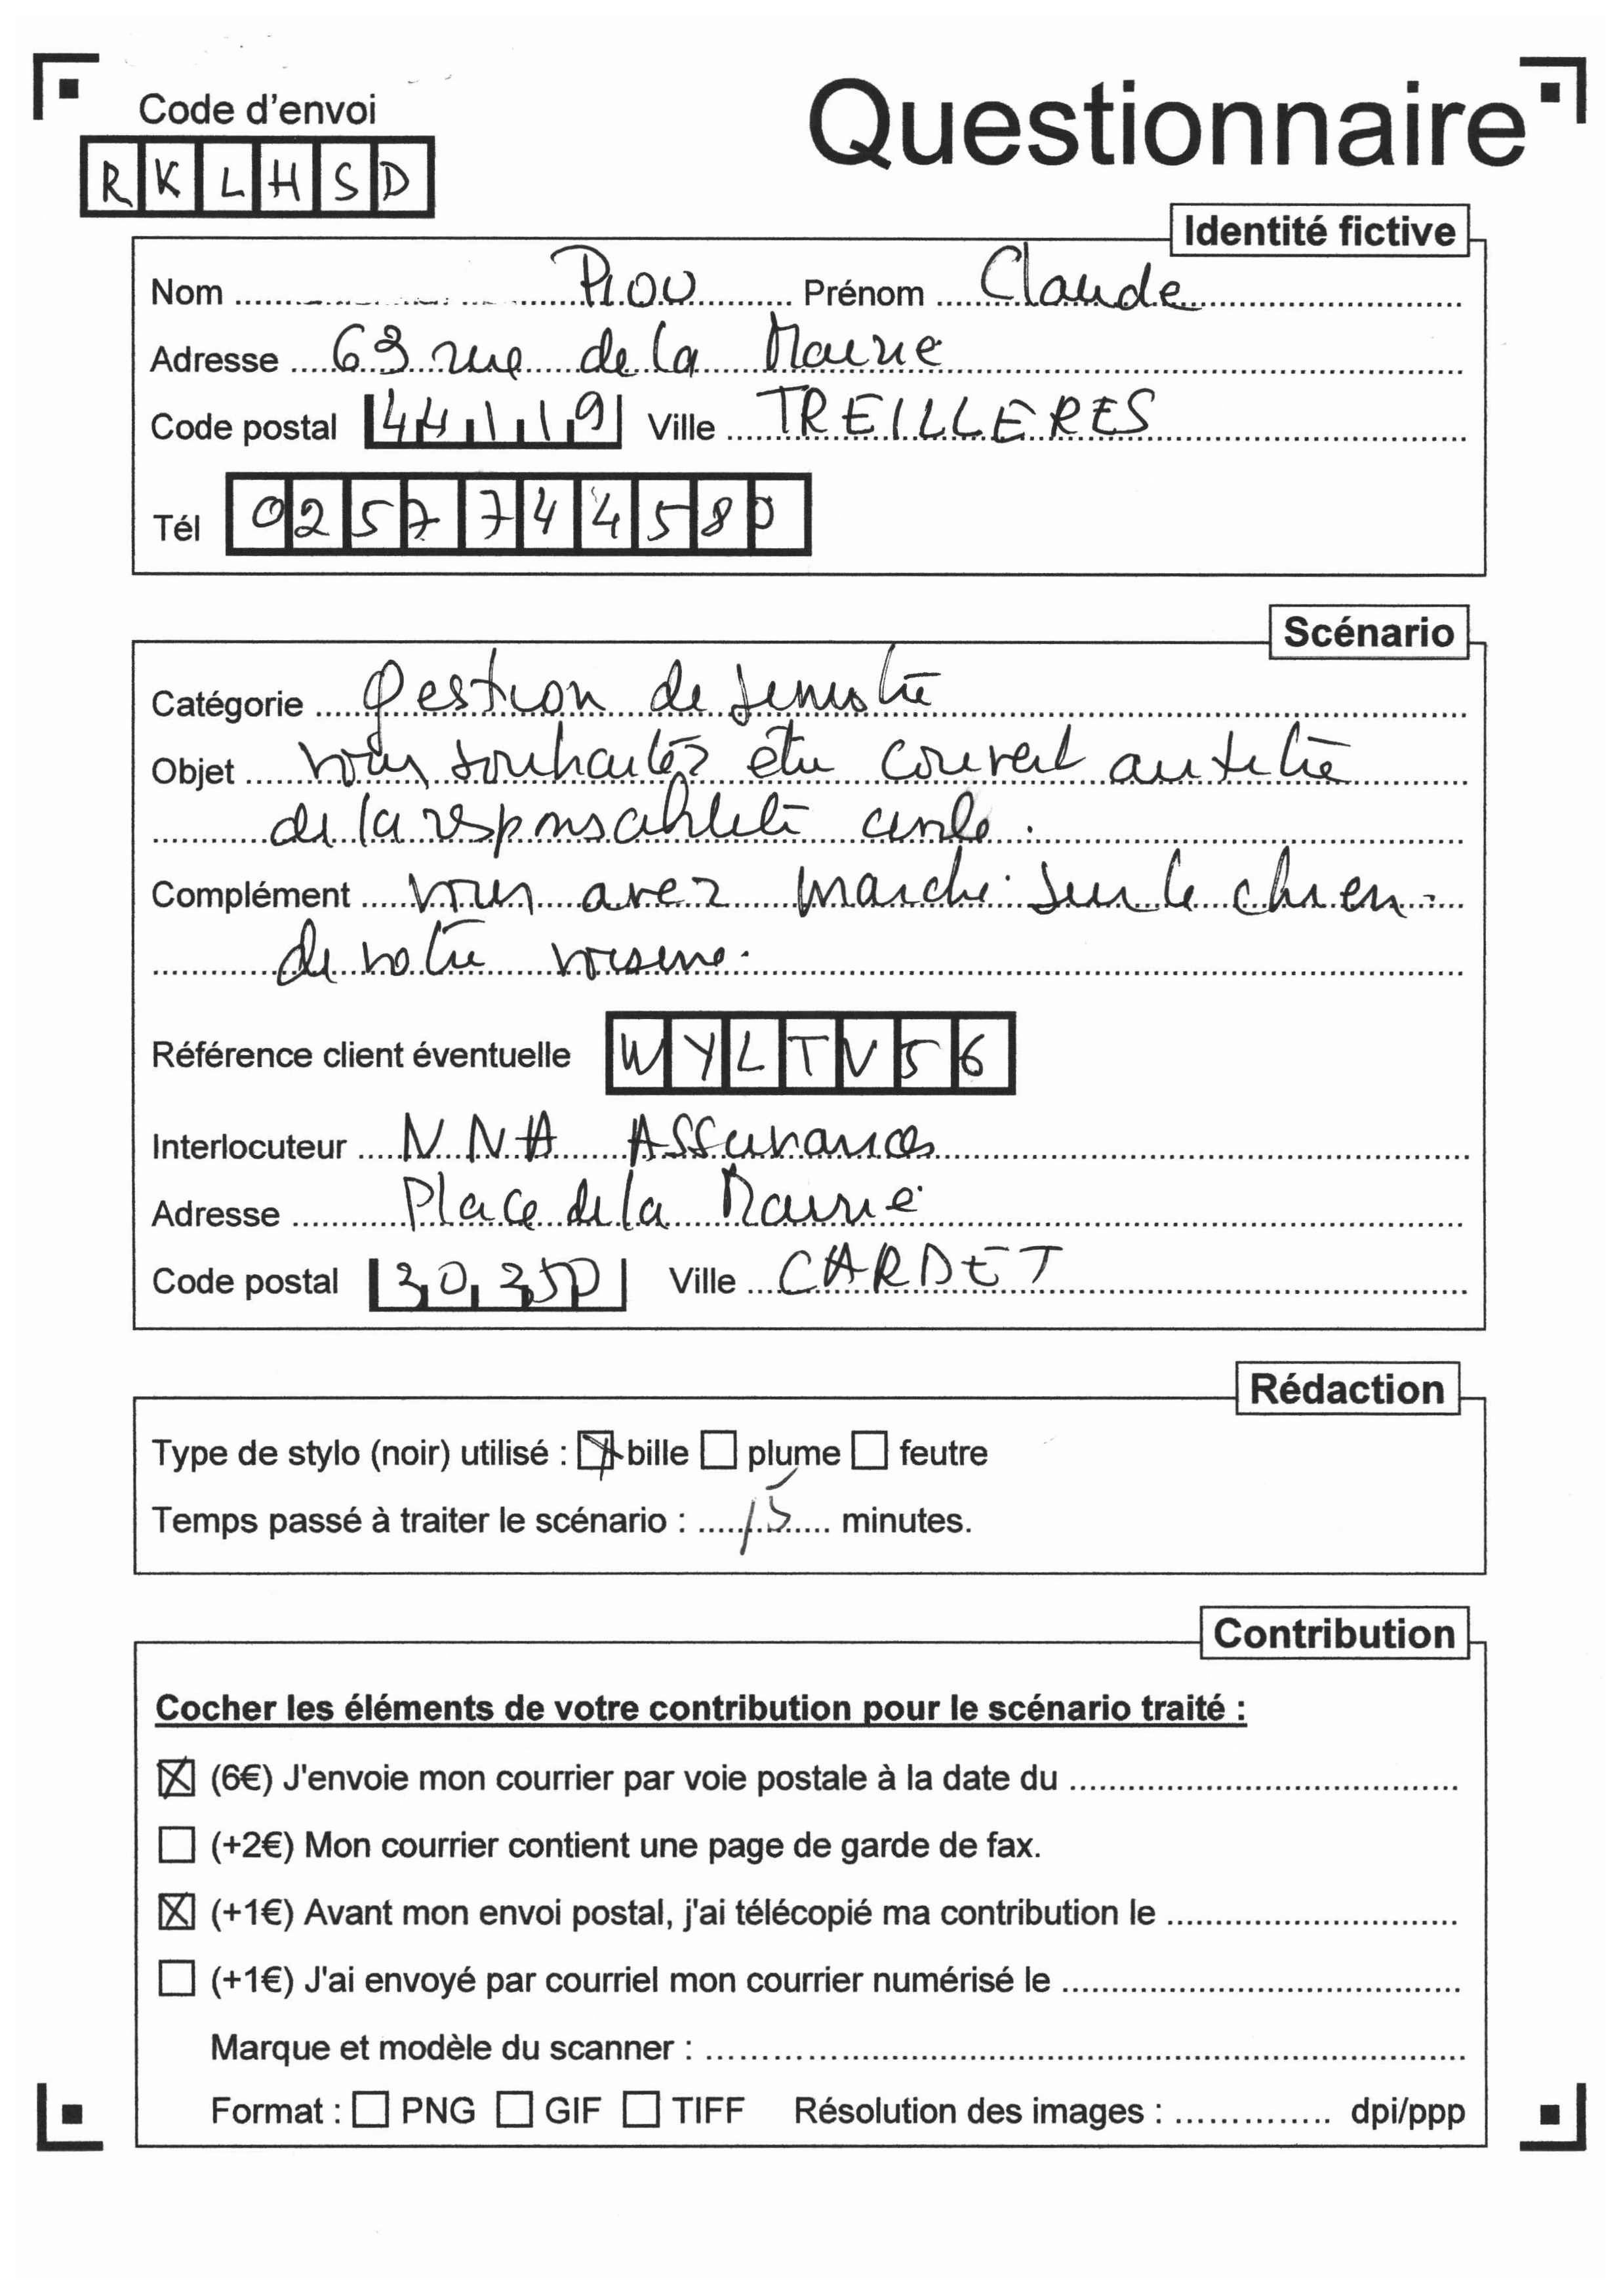 Code d'envoi
Questionnaire
RKLHSD
Identité fictive
Nom Piou Prénom Claude
Adresse 63 rue de la Mairie
Code postal 44119 Ville TREILLERES
Tél 0257744580
Scénario
Catégorie gestion de sinistre
Objet vous souhaitez être couvert au titre
de la responsabilité civile.
Complément vous avez marché sur le chien
de votre voisine.
Référence client éventuelle WYLTV56
Interlocuteur NNA Assurances
Adresse Place de la Mairie
Code postal 30350 Ville CARDET
Rédaction
Type de stylo (noir) utilisé : bille plume feutre
Temps passé à traiter le scénario : 15 minutes.
Contribution
Cocher les éléments de votre contribution pour le scénario traité :
(6€) J'envoie mon courrier par voie postale à la date du
(+2€) Mon courrier contient une page de garde de fax.
(+1€) Avant mon envoi postal, j'ai télécopié ma contribution le
(+1€) J'ai envoyé par courriel mon courrier numérisé le
Marque et modèle du scanner :
Format : PNG GIF TIFF Résolution des images : dpi/ppp